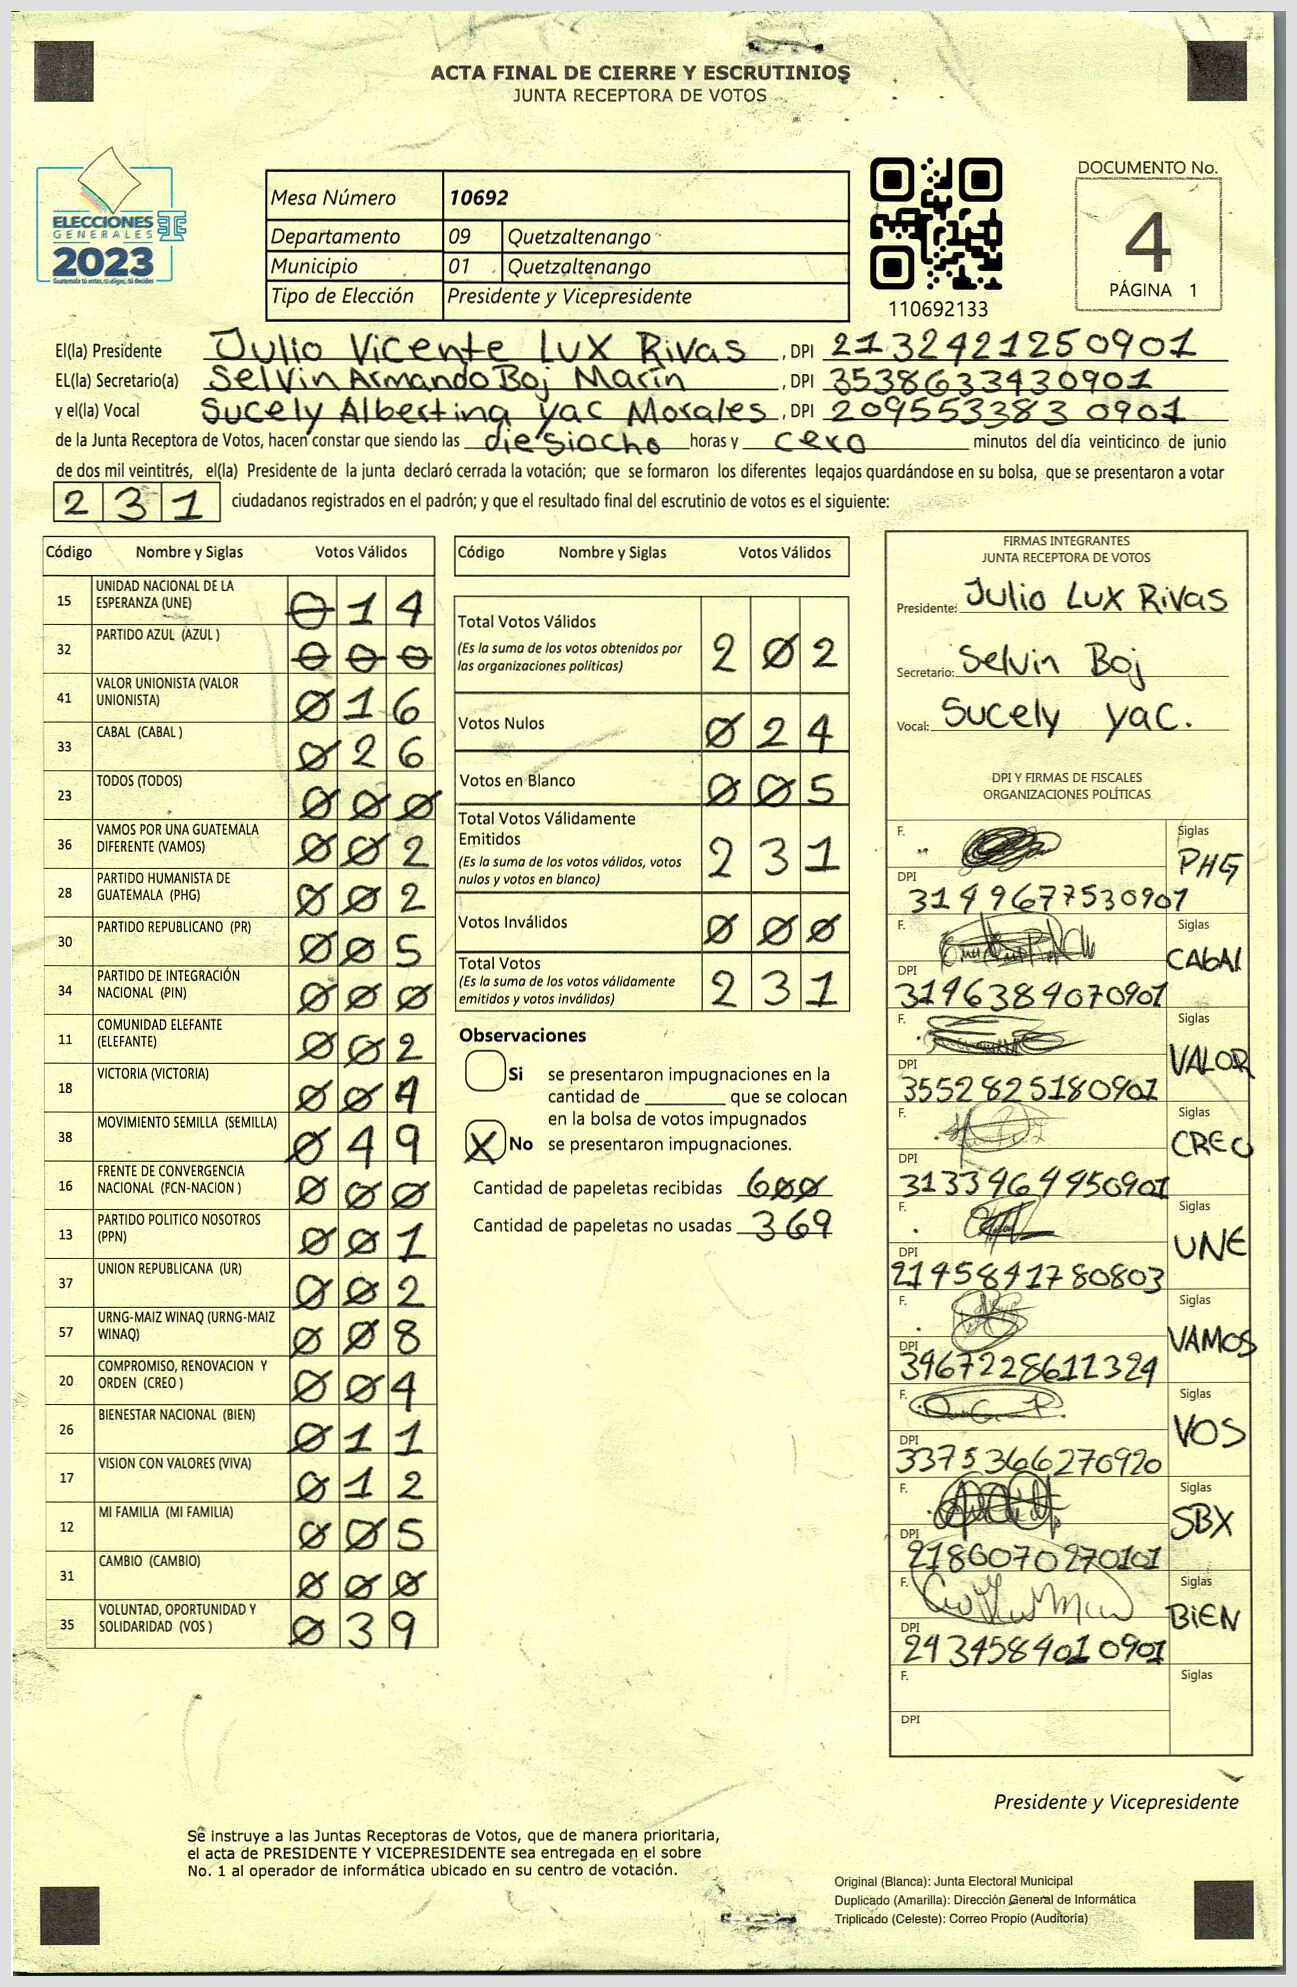 ACTA FINAL DE CIERRE Y ESCRUTINIOS
JUNTA RECEPTORA DE VOTOS
ELECCIONES
GENERALES
2023
Mesa Número 10692
Departamento 09 Quetzaltenango
Municipio 01 Quetzaltenango
Tipo de Elección Presidente y Vicepresidente
110692133
DOCUMENTO No.
4
PÁGINA 1
El(la) Presidente Julio Vicente Lux Rivas , DPI 2132421250901
EL(la) Secretario(a) Selvin Armando Boj Marín , DPI 3538633430901
y el(la) Vocal Sucely Albertina Yac Morales , DPI 2095533830901
de la Junta Receptora de Votos, hacen constar que siendo las diesiocho horas y cero minutos del día veinticinco de junio
de dos mil veintitrés, el(la) Presidente de la junta declaró cerrada la votación; que se formaron los diferentes legajos guardándose en su bolsa, que se presentaron a votar
231 ciudadanos registrados en el padrón; y que el resultado final del escrutinio de votos es el siguiente:
Código Nombre y Siglas Votos Válidos
15 UNIDAD NACIONAL DE LA ESPERANZA (UNE) 014
32 PARTIDO AZUL (AZUL ) 000
41 VALOR UNIONISTA (VALOR UNIONISTA) 016
33 CABAL (CABAL ) 026
23 TODOS (TODOS) 000
36 VAMOS POR UNA GUATEMALA DIFERENTE (VAMOS) 002
28 PARTIDO HUMANISTA DE GUATEMALA (PHG) 002
30 PARTIDO REPUBLICANO (PR) 005
34 PARTIDO DE INTEGRACIÓN NACIONAL (PIN) 000
11 COMUNIDAD ELEFANTE (ELEFANTE) 002
18 VICTORIA (VICTORIA) 004
38 MOVIMIENTO SEMILLA (SEMILLA) 049
16 FRENTE DE CONVERGENCIA NACIONAL (FCN-NACION ) 000
13 PARTIDO POLITICO NOSOTROS (PPN) 001
37 UNION REPUBLICANA (UR) 002
57 URNG-MAIZ WINAQ (URNG-MAIZ WINAQ) 008
20 COMPROMISO, RENOVACION Y ORDEN (CREO ) 004
26 BIENESTAR NACIONAL (BIEN) 011
17 VISION CON VALORES (VIVA) 012
12 MI FAMILIA (MI FAMILIA) 005
31 CAMBIO (CAMBIO) 000
35 VOLUNTAD, OPORTUNIDAD Y SOLIDARIDAD (VOS ) 039
Código Nombre y Siglas Votos Válidos
Total Votos Válidos 202
(Es la suma de los votos obtenidos por
las organizaciones políticas)
Votos Nulos 024
Votos en Blanco 005
Total Votos Válidamente
Emitidos 231
(Es la suma de los votos válidos, votos
nulos y votos en blanco)
Votos Inválidos 000
Total Votos 231
(Es la suma de los votos válidamente
emitidos y votos inválidos)
Observaciones
Si se presentaron impugnaciones en la
cantidad de ________ que se colocan
en la bolsa de votos impugnados
X No se presentaron impugnaciones.
Cantidad de papeletas recibidas 600
Cantidad de papeletas no usadas 369
FIRMAS INTEGRANTES
JUNTA RECEPTORA DE VOTOS
Presidente: Julio Lux Rivas
Secretario: Selvin Boj
Vocal: Sucely Yac.
DPI Y FIRMAS DE FISCALES
ORGANIZACIONES POLÍTICAS
F. Siglas PHG
DPI 3149677530901
F. Siglas CABAL
DPI 3196389070901
F. Siglas VALOR
DPI 3552825180901
F. Siglas CREO
DPI 3133969950901
F. Siglas UNE
DPI 2195891780803
F. Siglas VAMOS
DPI 3967228611329
F. Siglas VOS
DPI 3375366270920
F. Siglas SBX
DPI 2186070270101
F. Siglas BIEN
DPI 2434584010901
F. Siglas
DPI
Presidente y Vicepresidente
Se instruye a las Juntas Receptoras de Votos, que de manera prioritaria,
el acta de PRESIDENTE Y VICEPRESIDENTE sea entregada en el sobre
No. 1 al operador de informática ubicado en su centro de votación.
Original (Blanca): Junta Electoral Municipal
Duplicado (Amarilla): Dirección General de Informática
Triplicado (Celeste): Correo Propio (Auditoría)